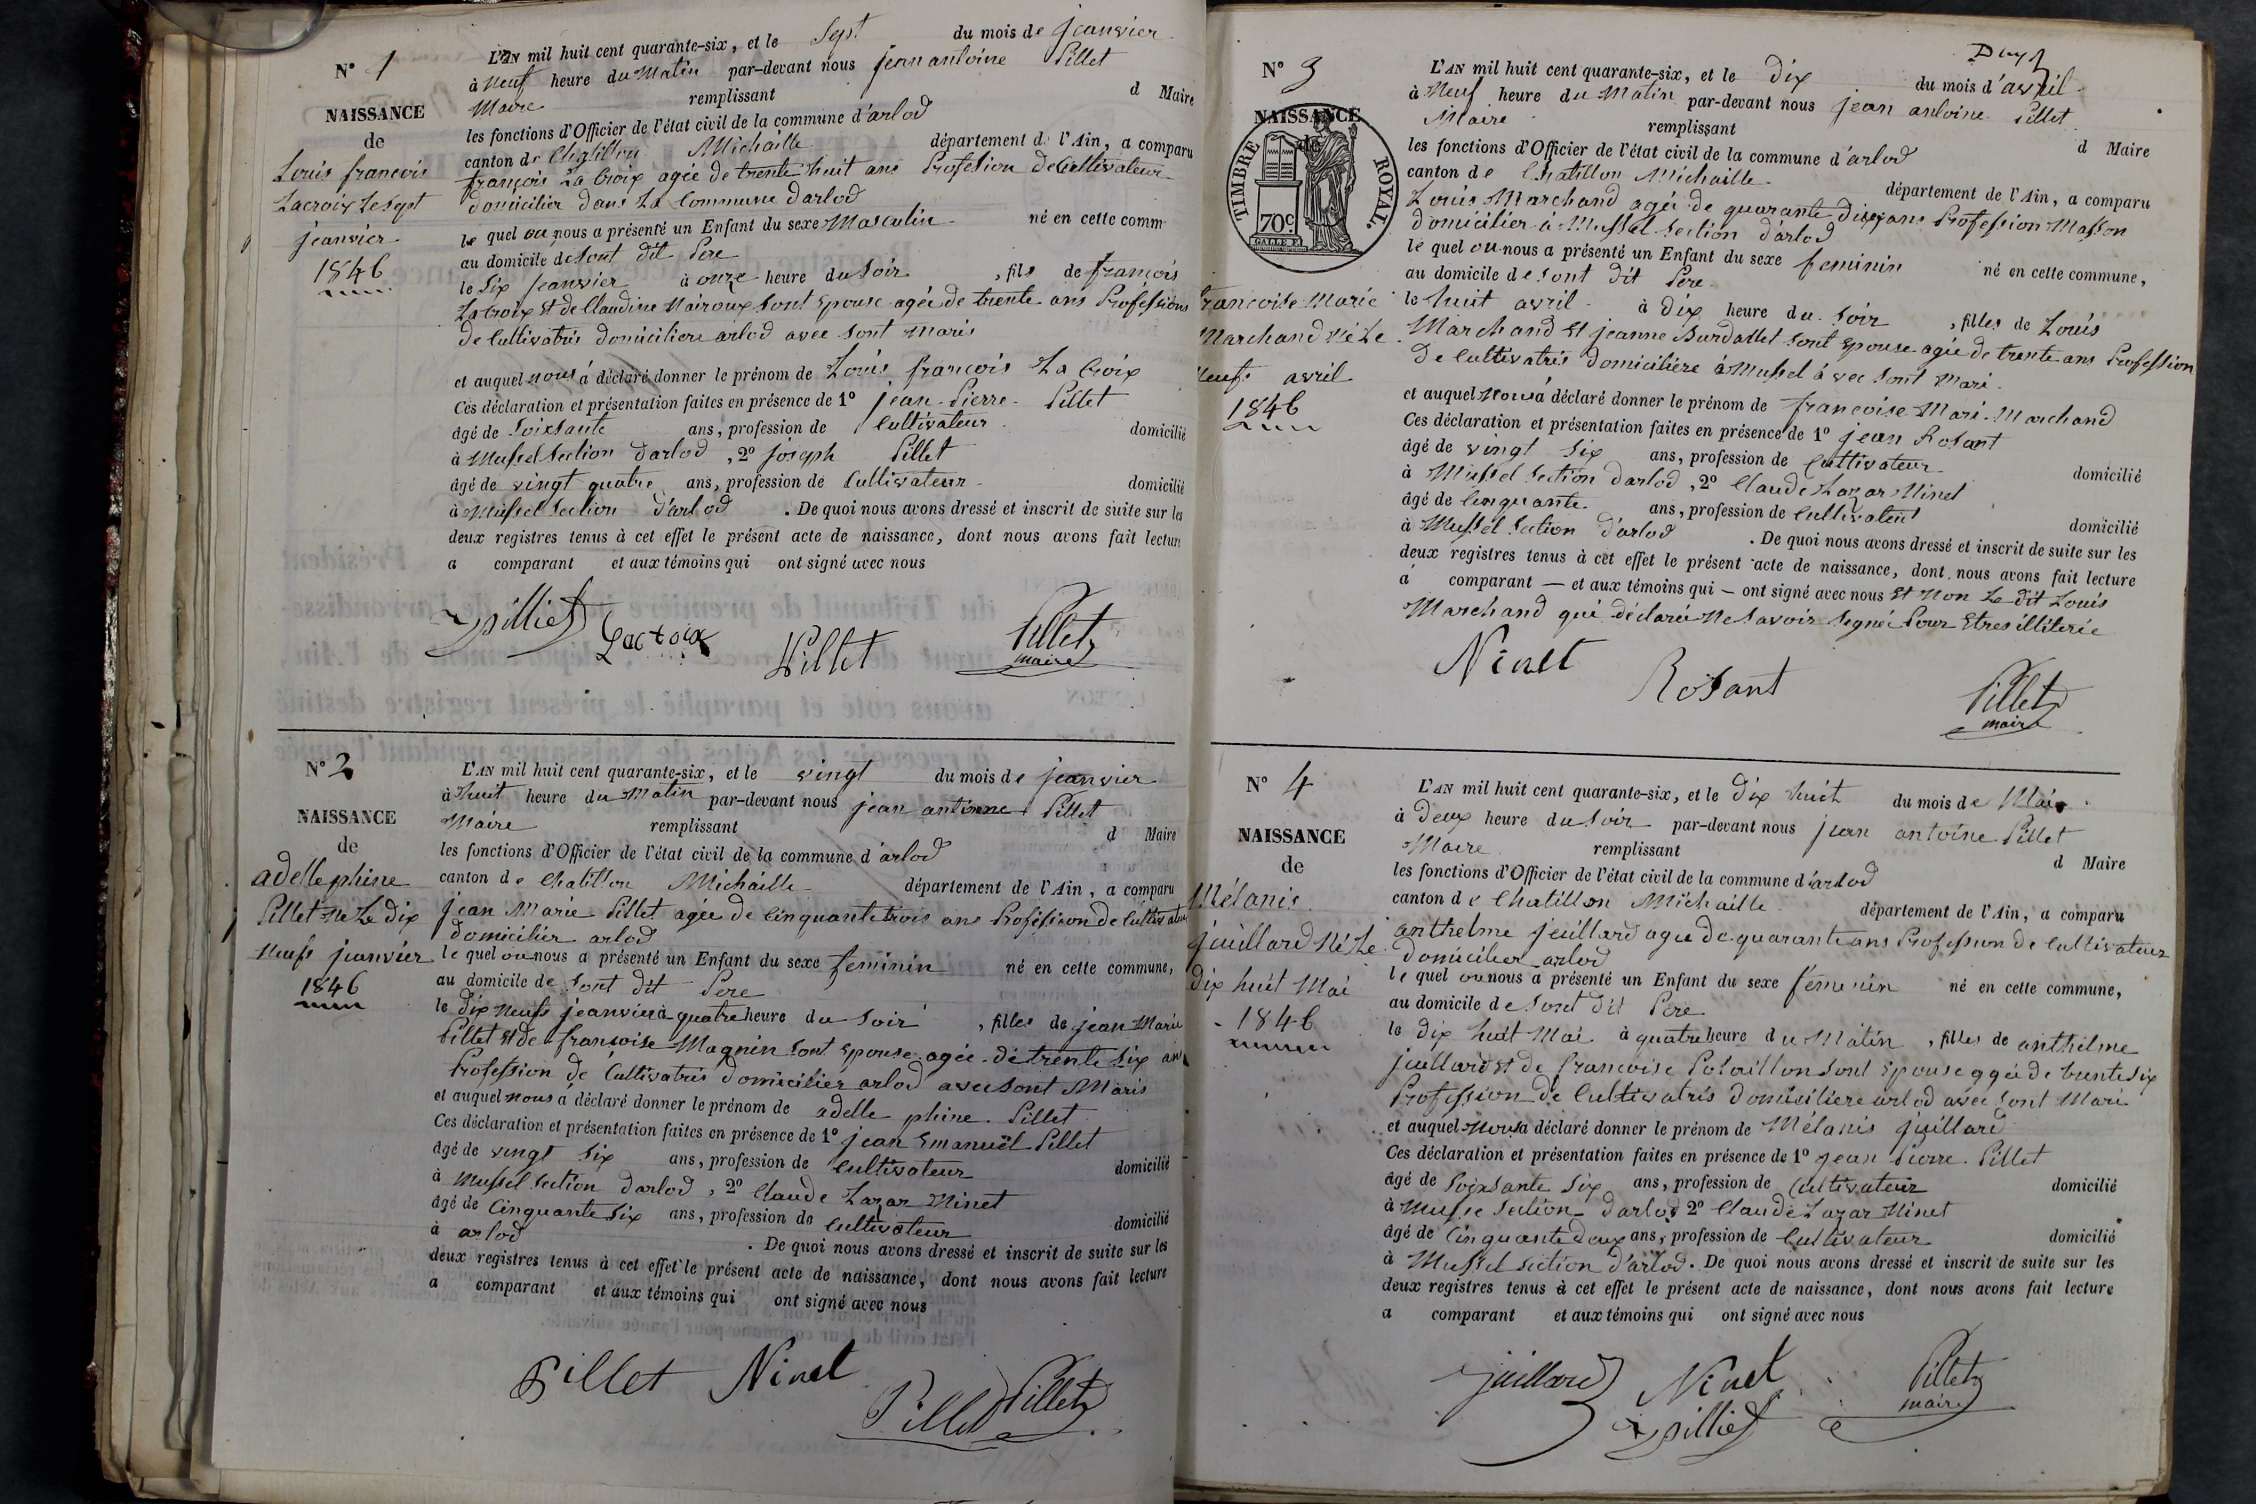 N° 1
NAISSANCE
de
Louis françois
Lacroix le sept
jeanvier
1846
L'AN mil huit cent quarante-six, et le Sept du mois de jeanvier
à Neuf heure du Matin par-devant nous jean antoine Pillet
Maire remplissant d Maire
les fonctions d'Officier de l'état civil de la commune d'arlod
canton de Chatillon Michaille département de l'Ain, a comparu
françois La Croix agée de trente huit ans Profession de Cultivateur
domicilier dans La Commune darlod
le quel ou nous a présenté un Enfant du sexe Masculin né en cette comm
au domicile de sont dit Pere
le Six jeanvier à onze heure du Soir , fils de françois
La Croix et de Claudine Mairoux sont Epouse agée de trente ans Professions
de Cultivatris domiciliere arlod avec sont maris
et auquel nous a déclaré donner le prénom de Louis françois La Croix
Ces déclaration et présentation faites en présence de 1° jean-Pierre Pillet
âgé de Soixsante ans, profession de Cultivateur domicilié
à Mussel Section darlod , 2° joseph Pillet
âgé de vingt quatre ans, profession de Cultivateur domicilié
à Mussel Section d'arlod . De quoi nous avons dressé et inscrit de suite sur les
deux registres tenus à cet effet le présent acte de naissance, dont nous avons fait lecture
a comparant et aux témoins qui ont signé avec nous
pilliet Lacroix Pillet Pillet
maire
N° 2
NAISSANCE
de
adelle phine
Pillet né Le dix
Neufs jeanvier
1846
L'AN mil huit cent quarante-six, et le vingt du mois de jeanvier
à huit heure du Matin par-devant nous jean antoine Pillet
Maire remplissant d Maire
les fonctions d'Officier de l'état civil de la commune d'arlod
canton de Chatillon Michaille département de l'Ain, a comparu
jean Marie Pillet agée de Cinquante trois ans Profession de Cultivateur
domicilier arlod
le quel ou nous a présenté un Enfant du sexe feminin né en cette commune,
au domicile de sont dit Pere
le dix neufs jeanvier à quatre heure du Soir , filles de jean Marie
Pillet et de françoise Magnin sont Epouse agée de trente Six an
Profession de Cultivatris domicilier arlod avec sont Maris
et auquel nous a déclaré donner le prénom de adelle phine Pillet
Ces déclaration et présentation faites en présence de 1° jean Emanuël Pillet
âgé de vingt Six ans, profession de Cultivateur domicilié
à Mussel Section darlod , 2° Claude Lazar Ninet
âgé de Cinquante Six ans, profession de Cultivateur domicilié
à arlod . De quoi nous avons dressé et inscrit de suite sur les
deux registres tenus à cet effet le présent acte de naissance, dont nous avons fait lecture
a comparant et aux témoins qui ont signé avec nous
Pillet Ninet
Pillet Pillet
N° 3
NAISSANCE
de
TIMBRE ROYAL.
70c.
françoise Marie
Marchand né Le
Neufs avril
1846
L'AN mil huit cent quarante-six, et le dix du mois d'avril
à Neuf heure du Matin par-devant nous jean antoine Pillet
Maire remplissant d Maire
les fonctions d'Officier de l'état civil de la commune d'arlod
canton de Chatillon Michaille département de l'Ain, a comparu
Louis Marchand agée de quarante dix ans Profession Masson
domicilier à Mussel Section d'arlod
le quel ou nous a présenté un Enfant du sexe feminin né en cette commune,
au domicile de sont dit Pere
le huit avril à dix heure du soir , filles de Louis
Marchand Et jeanne Burdallet sont Epouse agée de trente ans Profession
de Cultivatris domiciliére à Mussel avec sont Mari
et auquel nous a déclaré donner le prénom de françoise Mari Marchand
Ces déclaration et présentation faites en présence de 1° jean Rosant
âgé de vingt Six ans, profession de Cultivateur domicilié
à Mussel Section darlod , 2° Claude Lazar Ninet
âgé de Cinquante ans, profession de Cultivateur domicilié
à Mussel Section d'arlod . De quoi nous avons dressé et inscrit de suite sur les
deux registres tenus à cet effet le présent acte de naissance, dont nous avons fait lecture
a comparant — et aux témoins qui — ont signé avec nous Et Non Le dit Louis
Marchand qui déclaré Ne Savoir Signé Pour Etres illiterie
Ninet Rosant Pillet
maire
N° 4
NAISSANCE
de
Mélanis
juillard né Le
dix huit Mai
1846
L'AN mil huit cent quarante-six, et le dix huit du mois de Mai
à Deux heure du Soir par-devant nous jean antoine Pillet
Maire remplissant d Maire
les fonctions d'Officier de l'état civil de la commune d'arlod
canton de Chatillon Michaille département de l'Ain, a comparu
anthelme juillard agée de quarante ans Profession de Cultivateur
domicilier arlod
le quel ou nous a présenté un Enfant du sexe féminin né en cette commune,
au domicile de sont dit Pere
le dix huit Mai à quatre heure du Matin , filles de anthelme
juillard et de françoise Poloillon sont Epouse agée de trente six
Profession de Cultivatris domiciliere arlod avec sont Mari
et auquel nous a déclaré donner le prénom de Mélanis juillard
Ces déclaration et présentation faites en présence de 1° jean Pierre Pillet
âgé de Soixsante Six ans, profession de Cultivateur domicilié
à Musse Section darlod 2° Claude Lazar Ninet
âgé de Cinquante deux ans, profession de Cultivateur domicilié
à Mussel Section d'arlod . De quoi nous avons dressé et inscrit de suite sur les
deux registres tenus à cet effet le présent acte de naissance, dont nous avons fait lecture
a comparant et aux témoins qui ont signé avec nous
juillard Ninet Pillet
maire
pilliet